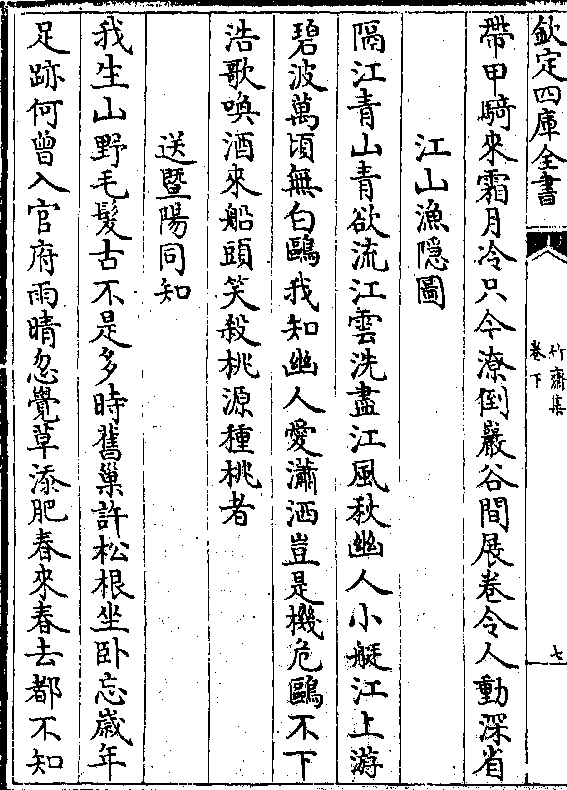 欽定四庫全書
竹齋集
卷下
七
帶甲騎來霜月冷只今潦倒巖谷間展卷令人動深省
江山漁隠圖
隔江青山青欲流江雲洗盡江風秋幽人小艇江上游
碧波萬頃無白鷗我知幽人愛瀟洒豈是機危鷗不下
浩歌喚酒來船頭笑殺桃源種桃者
送暨陽同知
我生山野毛髮古不是多時舊巢許松根坐卧忘歲年
足跡何曾入官府雨晴忽覺草添肥春來春去都不知